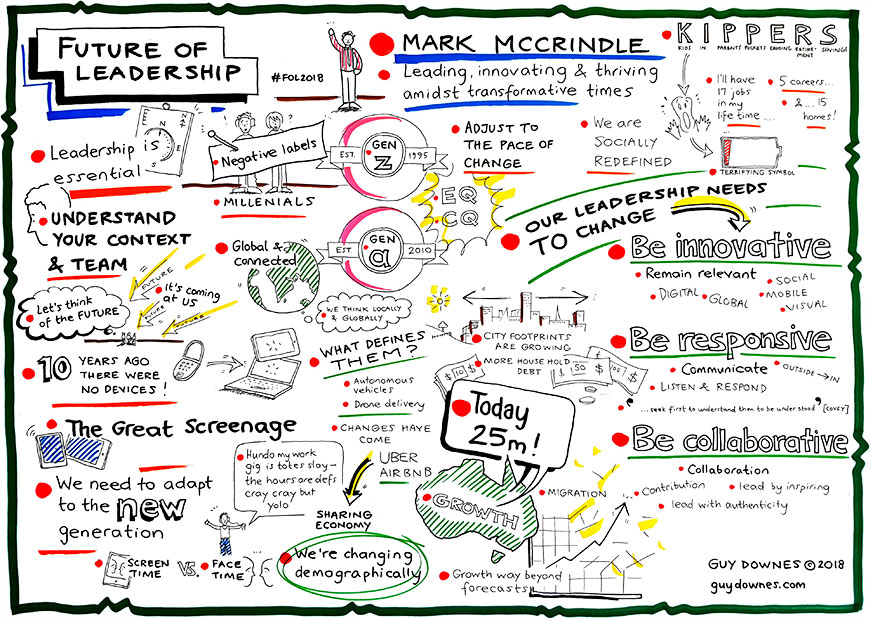 FUTURE OF
LEADERSHIP
#FOL2018
MARK MCCRINDLE
Leading, innovating & thriving
amidst transformative times
KIPPERS
KIDS IN PARENTS POCKETS ERODING RETIRE- SAVINGS
MENT
I'll have
17 jobs
in my
life time ...
5 careers...
& ... 15
homes!
TERRIFYING SYMBOL
Leadership is
essential
N
E
S
?
Negative labels
MILLENIALS
EST.
GEN
Z
1995
ADJUST TO
THE PACE OF
CHANGE
We are
SOCIALLY
REDEFINED
EQ
CQ
EST.
GEN
a
2010
UNDERSTAND
YOUR CONTEXT
& TEAM
Global &
connected
OUR LEADERSHIP NEEDS
TO CHANGE
Be innovative
Remain relevant
DIGITAL
GLOBAL
SOCIAL
MOBILE
VISUAL
Let's think
of the FUTURE
FUTURE
It's coming
at us
FUTURE
WE THINK LOCALLY
& GLOBALLY
CITY FOOTPRINTS
ARE GROWING
MORE HOUSE HOLD
DEBT
$ 10 $
$ 50 $
$ 100 $
Be responsive
Communicate
OUTSIDE → IN
LISTEN & RESPOND
"... seek first to understand then to be under stood" [COVEY]
10 YEARS AGO
THERE WERE
NO DEVICES!
WHAT DEFINES
THEM?
Autonomous
vehicles
Drone delivery
CHANGES HAVE
COME
UBER
AIRBNB
SHARING
ECONOMY
Today
25m!
GROWTH
MIGRATION
Growth way beyond
forecasts
Be collaborative
Collaboration
Contribution
lead by inspiring
lead with authenticity
The Great Screenage
We need to adapt
to the new
generation
Hundo my work
gig is totes slay -
the hours are defs
cray cray but
yolo
SCREEN
TIME
VS.
FACE
TIME
We're changing
demographically
GUY DOWNES © 2018
guydownes.com